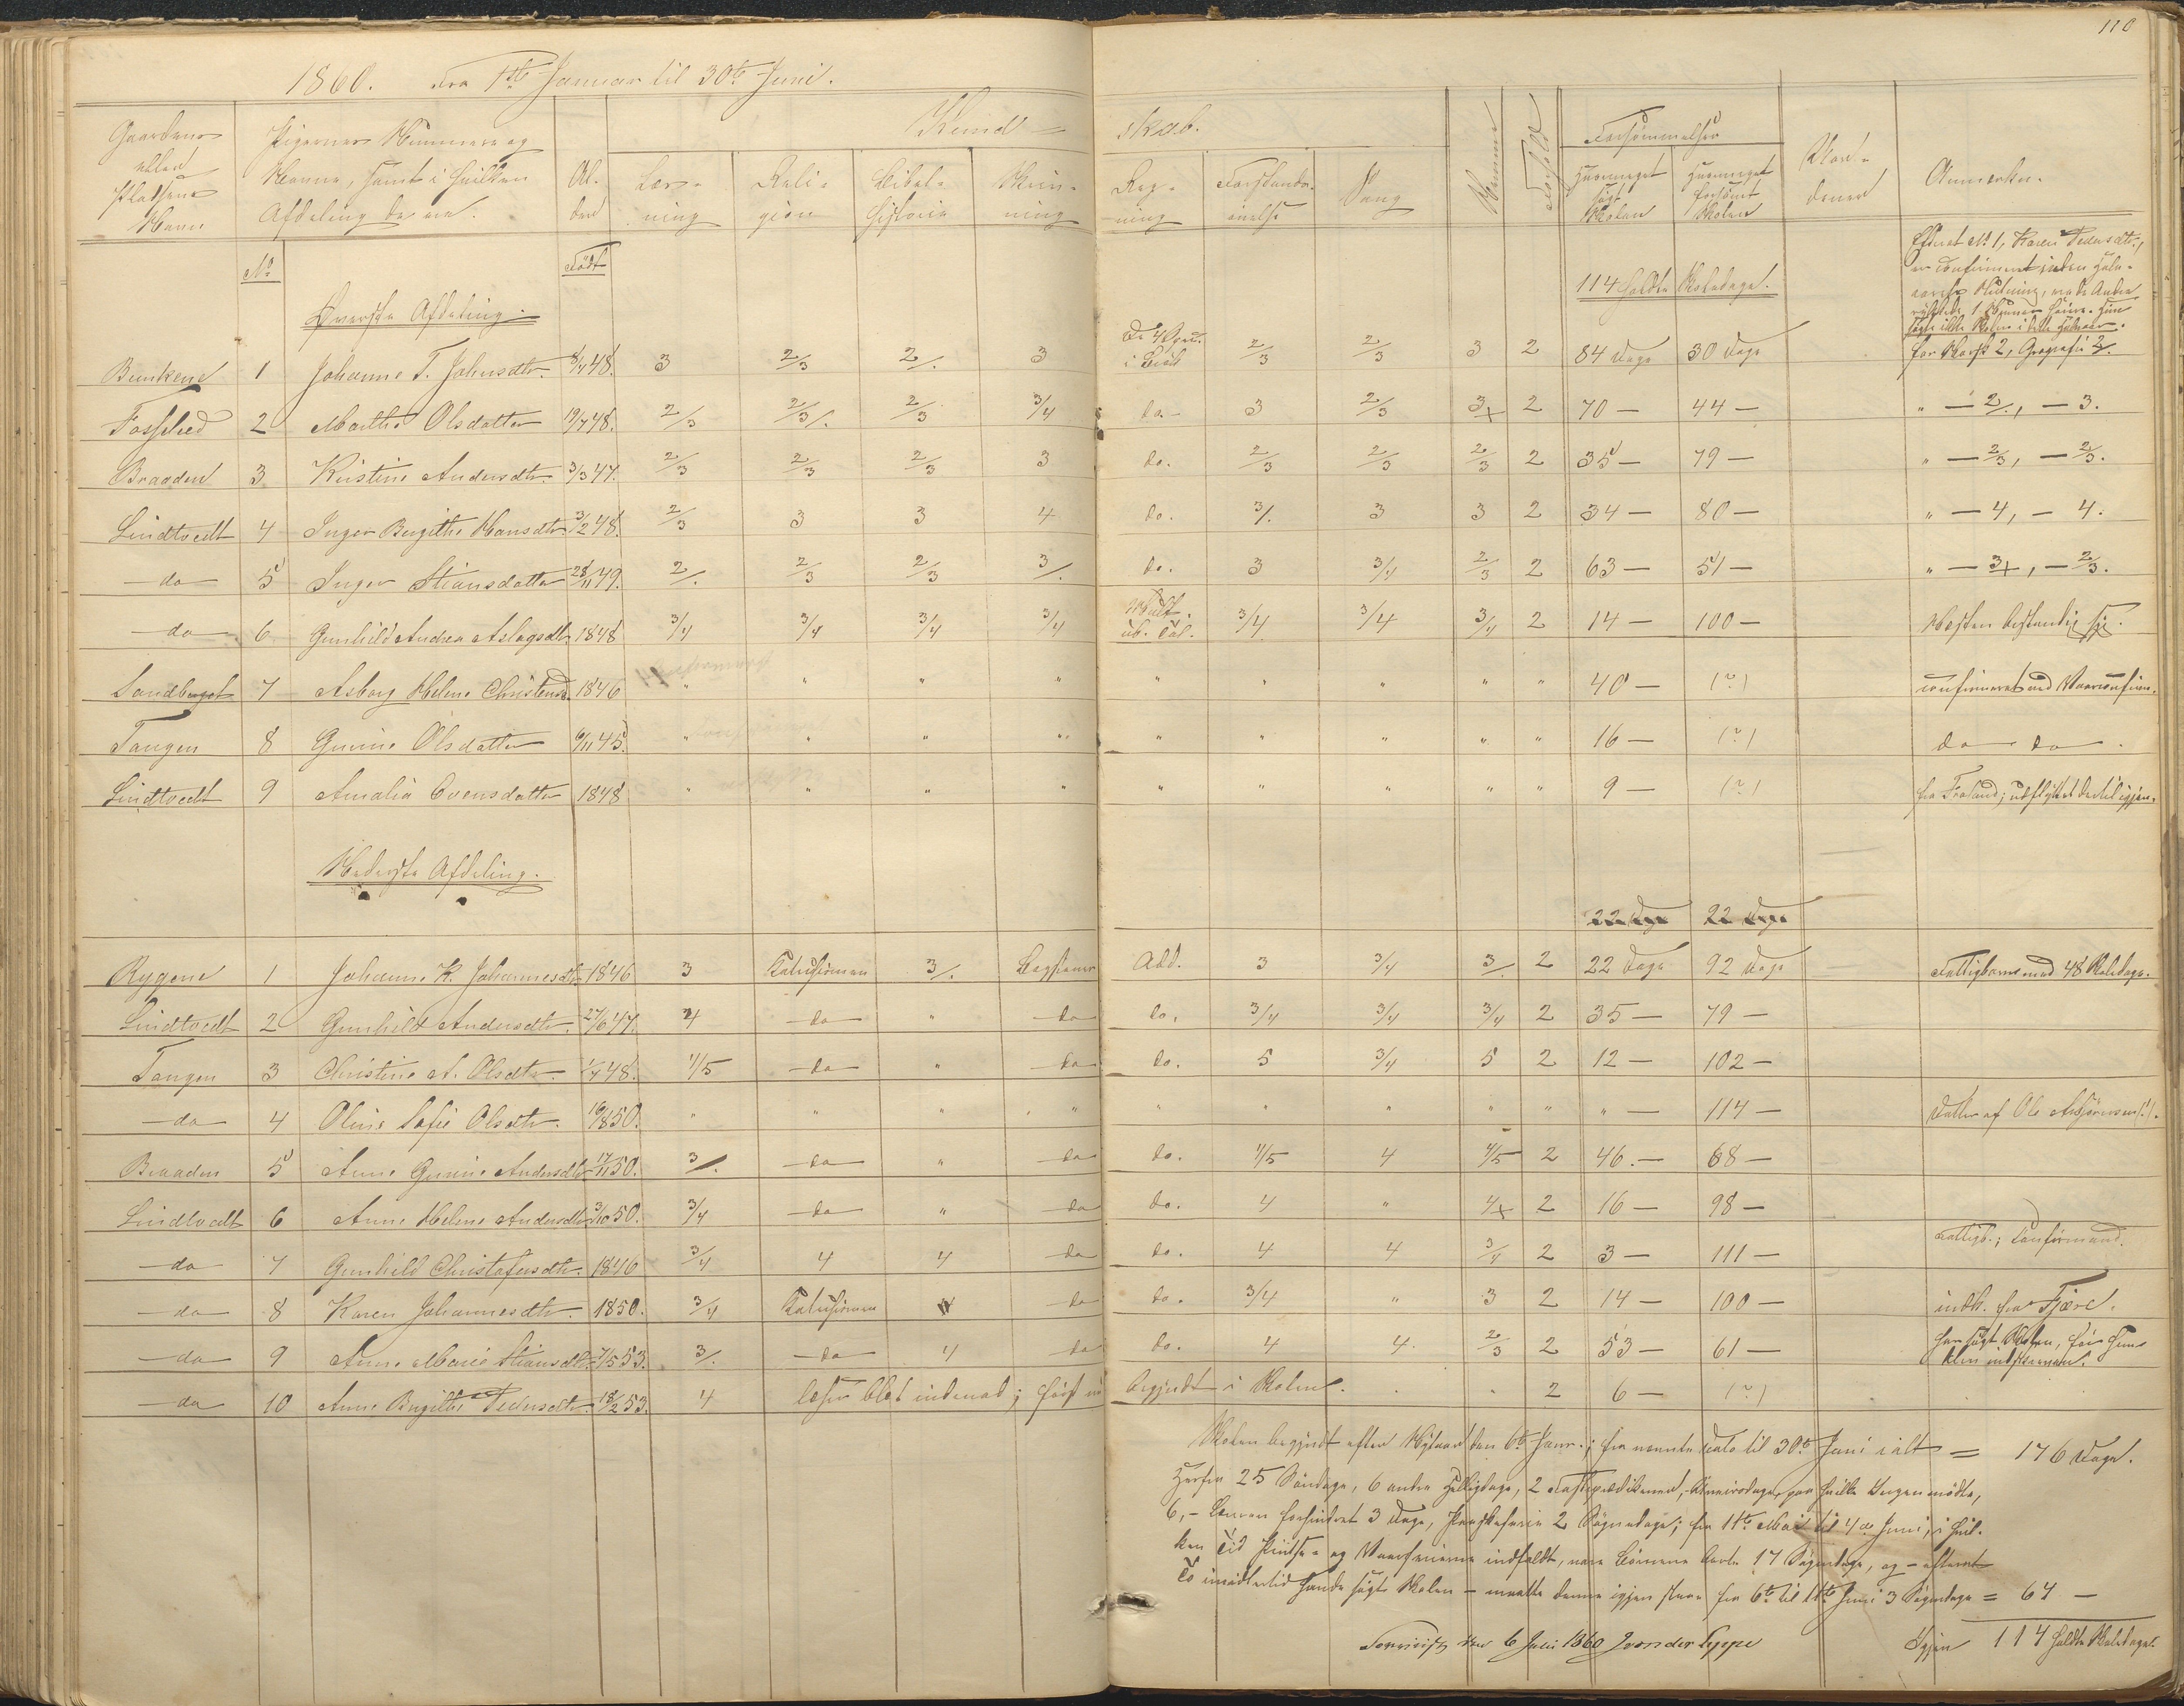 110
1860. Fra 1ste Januar til 30te Juni.
Gaardens eller Pladsens Navn
Pigernes Nummere og Navne, samt i hvilken Afdeling de ere.
Al- der
Kund- skab.
Læs- ning
Reli- gion
Bibel- historie
Skriv- ning
Reg- ning
Forstands- øvelse
Sang
Nemme
Forhold
Forsømmelser
Hvormeget søgt Skolen
Hvormeget forsømt Skolen
Anmærkn.
No
Født
114 holdte Skoledage.
Øverste Afdeling.
Elevet No 1, Karen Pedersdtr.,
er confirmeret inden Halv-
Bunkene 1 Johanne T. Johnsdtr. 8/4 48. 3 2/3 2/. 3 De 4 Spec. i Brök 2/3 2/3 3 2 84 Dage 30 Dage for Norsk 2, Geografi 2/.
Fosselied 2 Marthe Olsdatter 19/7 48. 2/3 2/3/. 2/3 3/4 do. 3 2/3 3+ 2 70 — 44 — " — 2/., — 3.
Braaden 3 Kristine Andersdtr. 3/3 47. 2/3 2/3 2/3 3 do. 2/3 2/3 2/3 2 35 — 79 — " — 2/3, — 2/3.
Lindtvedt 4 Inger Birgithe Hansdtr. 3/2 48. 2/3 3 3 4 do. 3/. 3 3 2 34 — 80 — " — 4, — 4.
do 5 Inger Stiansdatter 28/11 49. 2/. 2/3 2/3 3/. do. 3 3/4 2/3 2 63 — 51 — " — 3+, — 2/3.
do 6 Gunhild Andrea Aslagsdtr. 1848 3/4 3/4 3/4 3/4 Mult. ub. Tal. 3/4 3/4 3/4 2 14 — 100 — Næsten bestandig syg.
Sandberget 7 Asborg Helene Christensd. 1846 " " " " " " " " " 40 — (?) confirmeret ved Vaarconfirm.
Tangen 8 Gunine Olsdatter 6/11 45. " " " " " " " " " 16 — (?) do do.
Lindtvedt 9 Amalia Evensdatter 1848 " " " " " " " " " 9 — (?) fra Froland; udflyttet dertil igjen.
Nederste Afdeling.
22 Dage 92 Dage
Rygene 1 Johanne K. Johannesdtr. 1846 3 Katekismen 3/. Bogstaver Add. 3 3/4 3/. 2 22 Dage 92 Dage Fattigbarn med 48 Skoledage.
Lindtvedt 2 Gunhild Andersdtr. 27/6 47. 4 do " do do. 3/4 3/4 3/4 2 35 — 79 —
Tangen 3 Christine A. Olsdtr. 1/4 48. 4/5 do " do do. 5 3/4 5 2 12 — 102 —
do 4 Oline Sofie Olsdtr. 16/8 50. " " " " " " " " " " — 114 — Datter af Ole Asbjörnsen(?).
Braaden 5 Anne Gunine Andersdtr. 17/11 50. 3/. do " do do. 4/5 4 4/5 2 46. — 68 —
Lindtvedt 6 Anne Helene Andersdtr. 3/10 50. 3/4 do " do do. 4 " 4+ 2 16 — 98 —
do 7 Gunhild Christofersdtr. 1846 3/4 4 4 do do. 4 4 3/4 2 3 — 111 — Fattigb.; Confirmand.
do 8 Karen Johannesdtr. 1850. 3/4 Katekismen 4 do do. 3/4 " 3 2 14 — 100 — indk. fra Fjære.
do 9 Anne Marie Stiansdtr. 7/5 53. 3/. do 4 do do. 4 4. 2/3 2 53 — 61 — har søgt Skolen, før hun blev indskreven.
do 10 Anne Birgithe Pedersdtr. 18/2 53. 4 læser blot indenad; först nu begyndt i Skolen. 2 6 — (?)
Skolen begyndt efter Nytaar den 6te Janr.; fra nævnte Dato til 30te Juni i alt = 176 Dage.
Herfra 25 Söndage, 6 andre Helligdage, 2 Fasteprædikener, Uveirsdage, paa hvilke Ingen mödte,
6, — Læreren forhindret 3 Dage, Paaskeferie 2 Sögnedage; fra 11te Mai til 4de Juni, i hvil-
ken Tid Pintse- og Vaarferierne indfaldt, vare Börnene borte 17 Sögnedage, og — efterat
To imidlertid havde søgt Skolen — maatte denne igjen staae fra 6te til 11te Juni 3 Sögnedage = 62 —
Igjen 114 holdte Skoledage.
den 6 Juli 1860